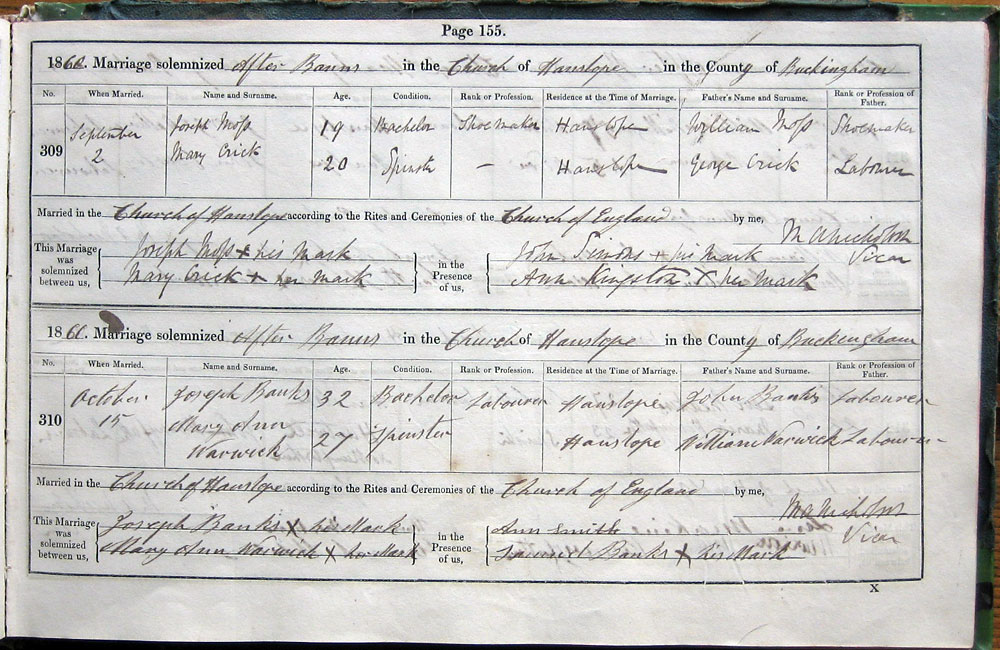 Page 155.
1860. Marriage solemnized After Banns in the Church of Hanslope in the County of Buckingham
No. When Married. Name and Surname. Age. Condition. Rank or Profession. Residence at the Time of Marriage. Father's Name and Surname. Rank or Profession of Father.
309 September 2 Joseph Moſs 19 Bachelor Shoemaker Hanslope William Moſs Shoemaker
Mary Crick 20 Spinster – Hanslope George Crick Labourer
Married in the Church of Hanslope according to the Rites and Ceremonies of the Church of England by me,
Vicar
This Marriage was solemnized between us, Joseph Moſs + his mark in the Presence of us, John Simons + his mark
Mary Crick + her mark Ann Kingston X her mark
1860. Marriage solemnized After Banns in the Church of Hanslope in the County of Buckingham
No. When Married. Name and Surname. Age. Condition. Rank or Profession. Residence at the Time of Marriage. Father's Name and Surname. Rank or Profession of Father.
310 October 15 Joseph Banks 32 Bachelor Labourer Hanslope John Banks Labourer
Mary Ann Warwick 27 Spinster Hanslope William Warwick Labourer
Married in the Church of Hanslope according to the Rites and Ceremonies of the Church of England by me,
Vicar
This Marriage was solemnized between us, Joseph Banks X his Mark in the Presence of us, Ann Smith
Mary Ann Warwick X her Mark Samuel Banks X his Mark
X